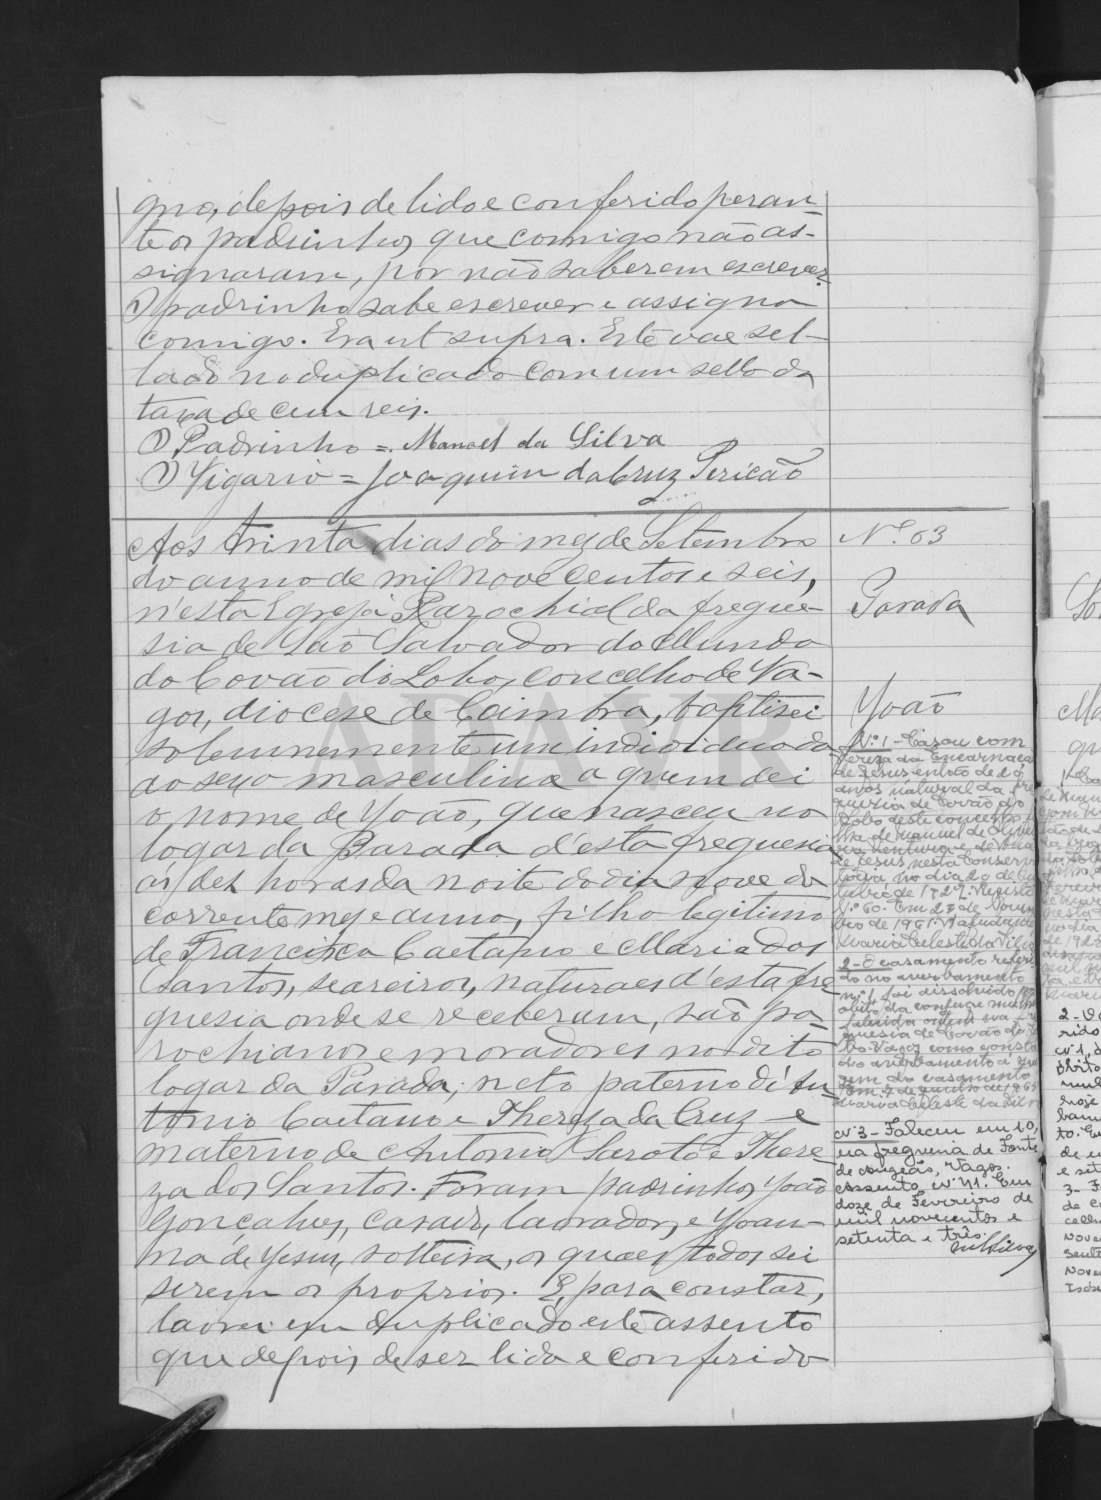 que, depois de lido e conferido peran-
te os padrinhos, que comigo não as-
signaram, por não saberem escrever.
O padrinho sabe escrever e assigna
comigo. Era ut supra. Este vae sel-
lado no duplicado com um sello da
taxa de cem reis.
O Padrinho = Manoel da Silva
O Vigario = Joaquim da Cruz Pericão
Aos trinta dias do mez de Setembro
do anno de mil nove centos e seis,
n'esta Egreja Parochial da fregue-
sia de São Salvador do Mundo
do Covão do Lobo, concelho de Va-
gos, diocese de Coimbra, baptisei
solemnemente um individuo do
do sexo masculino a quem dei
o nome de João, que nasceu no
logar da Parada d'esta freguesia
ás dez horas da noite do dia nove do
corrente mez e anno, filho legitimo
de Francisco Caetano e Maria dos
Santos, seareiros, naturaes d'esta fre-
guesia onde se receberam, são pa-
rochianos e moradores no dito
logar da Parada; neto paterno d'An-
tonio Caetano e Thereza da Cruz e
materno de Antonio Sarotó e There-
za dos Santos. Foram padrinhos João
Gonçalves, casado, lavrador, e Joan-
na de Jesus, solteira, os quaes todos sei
serem os proprios. E, para constar,
lavrei em duplicado este assento
que depois de ser lido e conferido
Nº 63
Parada
João
Nº 1 - Casou com
Tereza da Encarnação
de Jesus então de 20
anos natural da fre
guezia de Covão do
Lobo deste concelho fi
lha de Manuel de Olivei
ra Ventura e de
de Jesus nesta Conserva
toria no dia 20 de Ou
tubro de 1927. Registo
Nº 60. Em 27 de Novem
bro de 1961. A ajudante
Maria Celeste da Silva
2 - O casamento referi
do no averbamento
nº 1, foi dissolvido por
obito da conjuge mulher
falecida ontem na fre
guesia de Covão do Lo
bo - Vagos como consta
do averbamento à mar
gem do casamento
Em 7 de Junho de 1965
Maria Celeste da Silva
Nº 3 - Faleceu em 10,
na freguesia de Fonte
de Angeão, Vagos.
Assento nº 41. Em
doze de Fevereiro de
mil novecentos e
setenta e três.
ADAVR